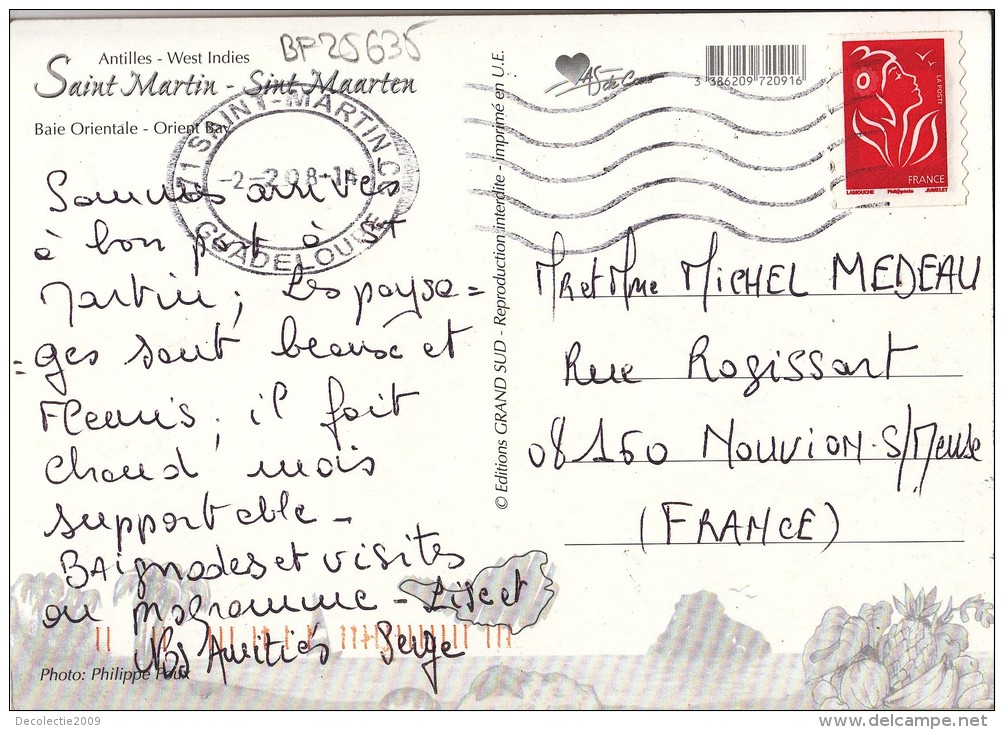 BF25635
Antilles - West Indies
Saint Martin - Sint Maarten
Baie Orientale - Orient Bay
971 SAINT-MARTIN CC
-2-2 08-14
GUADELOUPE
Sommes arrivés
à bon port à St
Martin; Les paysa=
=ges sont beaux et
Fleuris; il fait
chaud mais
supportable -
BAignades et visites
au programme - Lise et
Nos Amitiés Serge
Photo: Philippe Poux
© Editions GRAND SUD - Reproduction interdite - Imprimé en U.E.
As de Coeur
3 386209 720916
LA POSTE
FRANCE
LAMOUCHE Phil@poste JUMELET
Mr et Mme MICHEL MEDEAU
Rue Rogissart
08160 NOUVION S/Meuse
(FRANCE)
Decolectie2009
www.delcampe.net